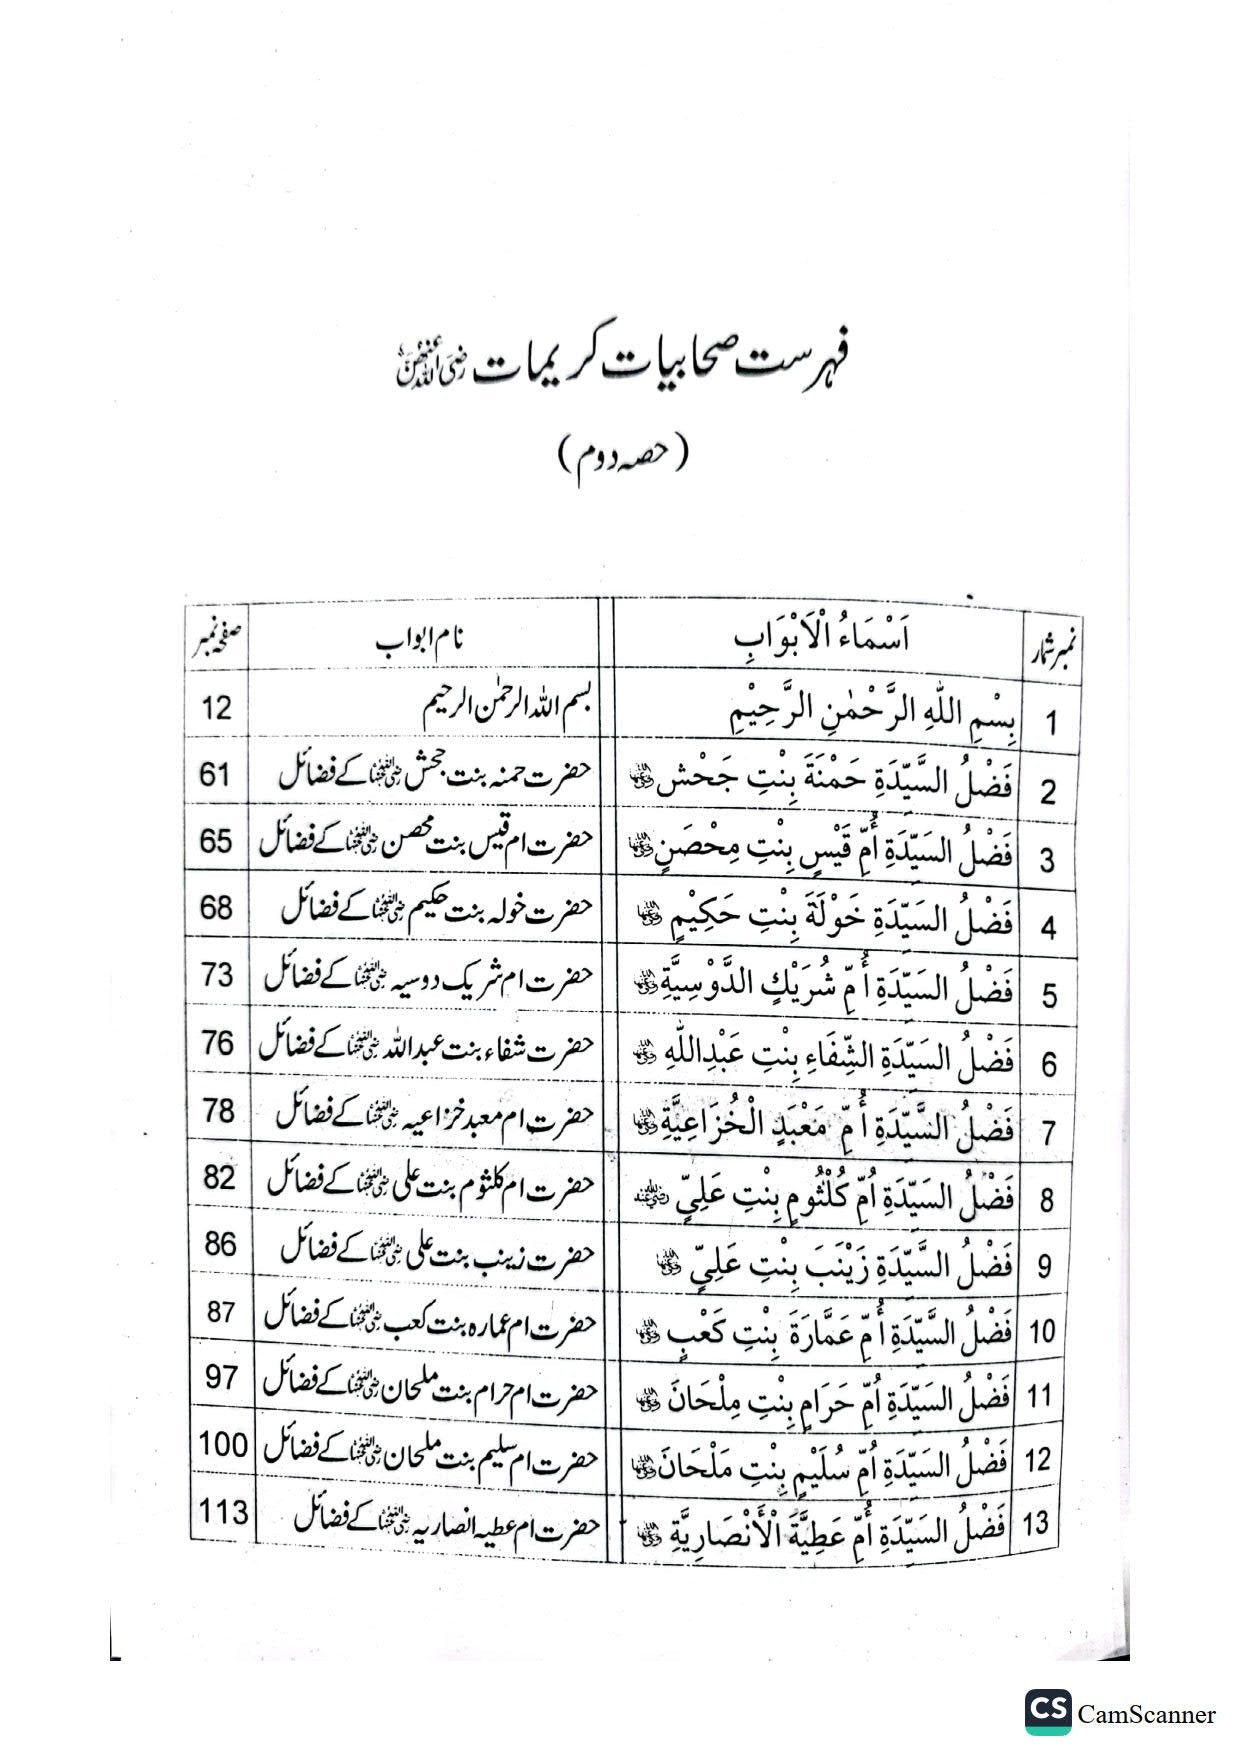 فہرست صحابیات کریمات رضی اللہ عنہن
(حصہ دوم)
نمبر شمار اَسْمَاءُ الْاَبْوَابِ نام ابواب صفحہ نمبر
1 بِسْمِ اللّٰهِ الرَّحْمٰنِ الرَّحِيْمِ بسم اللہ الرحمٰن الرحیم 12
2 فَضْلُ السَّيِّدَةِ حَمْنَةَ بِنْتِ جَحْش رضی اللہ عنہا حضرت حمنہ بنت جحش رضی اللہ عنہا کے فضائل 61
3 فَضْلُ السَيِّدَةِ أُمِّ قَيْسٍ بِنْتِ مِحْصَنٍ رضی اللہ عنہا حضرت ام قیس بنت محصن رضی اللہ عنہا کے فضائل 65
4 فَضْلُ السَيِّدَةِ خَوْلَةَ بِنْتِ حَكِيْمٍ رضی اللہ عنہا حضرت خولہ بنت حکیم رضی اللہ عنہا کے فضائل 68
5 فَضْلُ السَيِّدَةِ أُمِّ شُرَيْكٍ الدَّوْسِيَّةِ رضی اللہ عنہا حضرت ام شریک دوسیہ رضی اللہ عنہا کے فضائل 73
6 فَضْلُ السَيِّدَةِ الشِّفَاءِ بِنْتِ عَبْدِاللّٰهِ رضی اللہ عنہا حضرت شفاء بنت عبداللہ رضی اللہ عنہا کے فضائل 76
7 فَضْلُ السَّيِّدَةِ أُمِّ مَعْبَدٍ الْخُزَاعِيَّةِ رضی اللہ عنہا حضرت ام معبد خزاعیہ رضی اللہ عنہا کے فضائل 78
8 فَضْلُ السَيِّدَةِ اُمِّ كُلْثُومٍ بِنْتِ عَلِيٍّ رضی اللہ عنہ حضرت ام کلثوم بنت علی رضی اللہ عنہا کے فضائل 82
9 فَضْلُ السَّيِّدَةِ زَيْنَبَ بِنْتِ عَلِيٍّ رضی اللہ عنہا حضرت زینب بنت علی رضی اللہ عنہا کے فضائل 86
10 فَضْلُ السَّيِّدَةِ أُمِّ عَمَّارَةَ بِنْتِ كَعْبٍ رضی اللہ عنہا حضرت ام عمارہ بنت کعب رضی اللہ عنہا کے فضائل 87
11 فَضْلُ السَيِّدَةِ اُمِّ حَرَامٍ بِنْتِ مِلْحَانَ رضی اللہ عنہا حضرت ام حرام بنت ملحان رضی اللہ عنہا کے فضائل 97
12 فَضْلُ السَيِّدَةِ اُمِّ سُلَيْمٍ بِنْتِ مَلْحَانَ رضی اللہ عنہا حضرت ام سلیم بنت ملحان رضی اللہ عنہا کے فضائل 100
13 فَضْلُ السَيِّدَةِ أُمِّ عَطِيَّةَ الْأَنْصَارِيَّةِ رضی اللہ عنہا حضرت ام عطیہ انصاریہ رضی اللہ عنہا کے فضائل 113
CS CamScanner